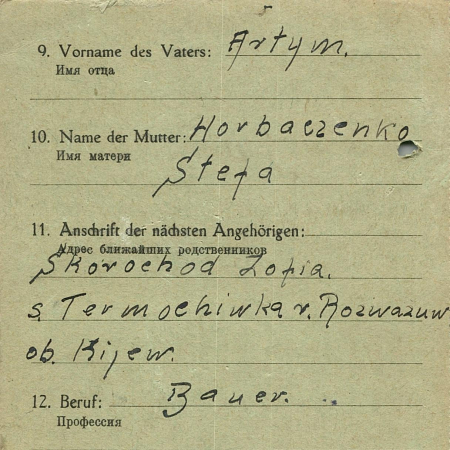 9. Vorname des Vaters: Artym.
Имя отца
10. Name der Mutter: Horbaczenko
Имя матери
Stefa
11. Anschrift der nächsten Angehörigen:
Адрес ближайших родственников
Skorochod Zofia.
s. Termochiwka r. Rozwazuw
ob. Kijew.
12. Beruf: Bauer.
Профессия